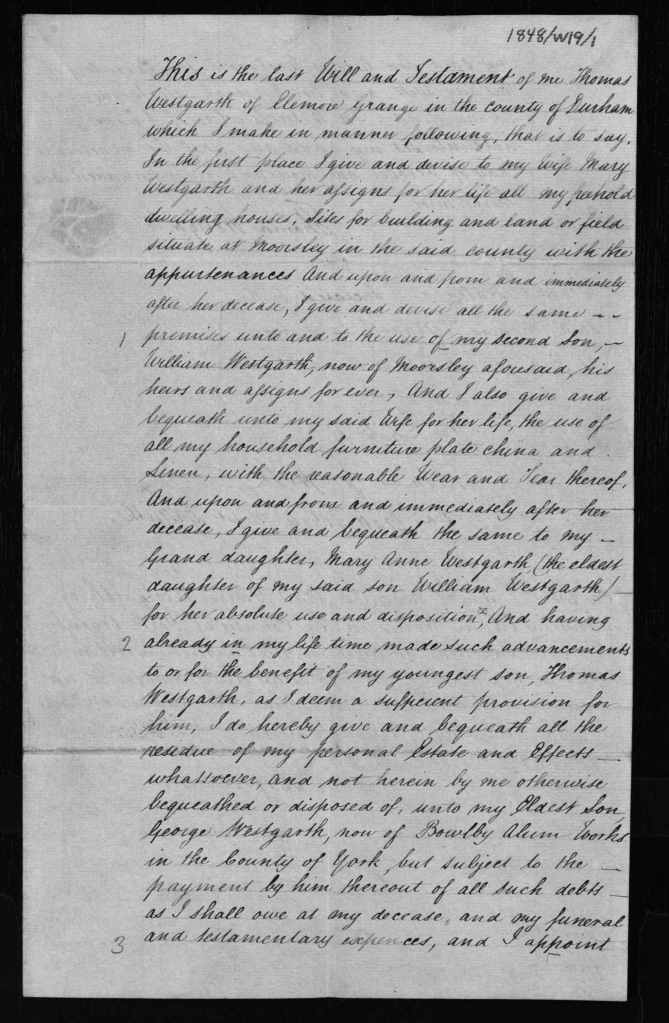 1848/W19/1
This is the last Will and Testament of me Thomas
Westgarth of Elemore Grange in the county of Durham
which I make in manner following, that is to say.
In the first place I give and devise to my Wife Mary
Westgarth and her assigns for her life all my freehold
dwelling houses, Sites for building and land or field
situate at Moorsley in the said county with the
appurtenances And upon and from and immediately
after her decease, I give and devise all the same - -
1 premises unto and to the use of my second Son, -
William Westgarth, now of Moorsley aforesaid, his
heirs and assigns for ever, And I also give and
bequeath unto my said Wife for her life, the use of
all my household furniture plate china and
Linen, with the reasonable Wear and Tear thereof.
And upon and from and immediately after her
decease, I give and bequeath the same to my -
Grand daughter, Mary Anne Westgarth (the eldest
daughter of my said son William Westgarth) -
for her absolute use and disposition x, And having
2 already in my life time made such advancements
to or for the benefit of my youngest son, Thomas
Westgarth, as I deem a sufficient provision for
him, I do hereby give and bequeath all the
residue of my personal Estate and Effects -
whatsoever, and not herein by me otherwise
bequeathed or disposed of, unto my Oldest Son,
George Westgarth, now of Bowlby Alum Works
in the County of York, but subject to the -
payment by him thereout of all such debts -
as I shall owe at my decease, and my funeral
3 and testamentary expences, and I appoint